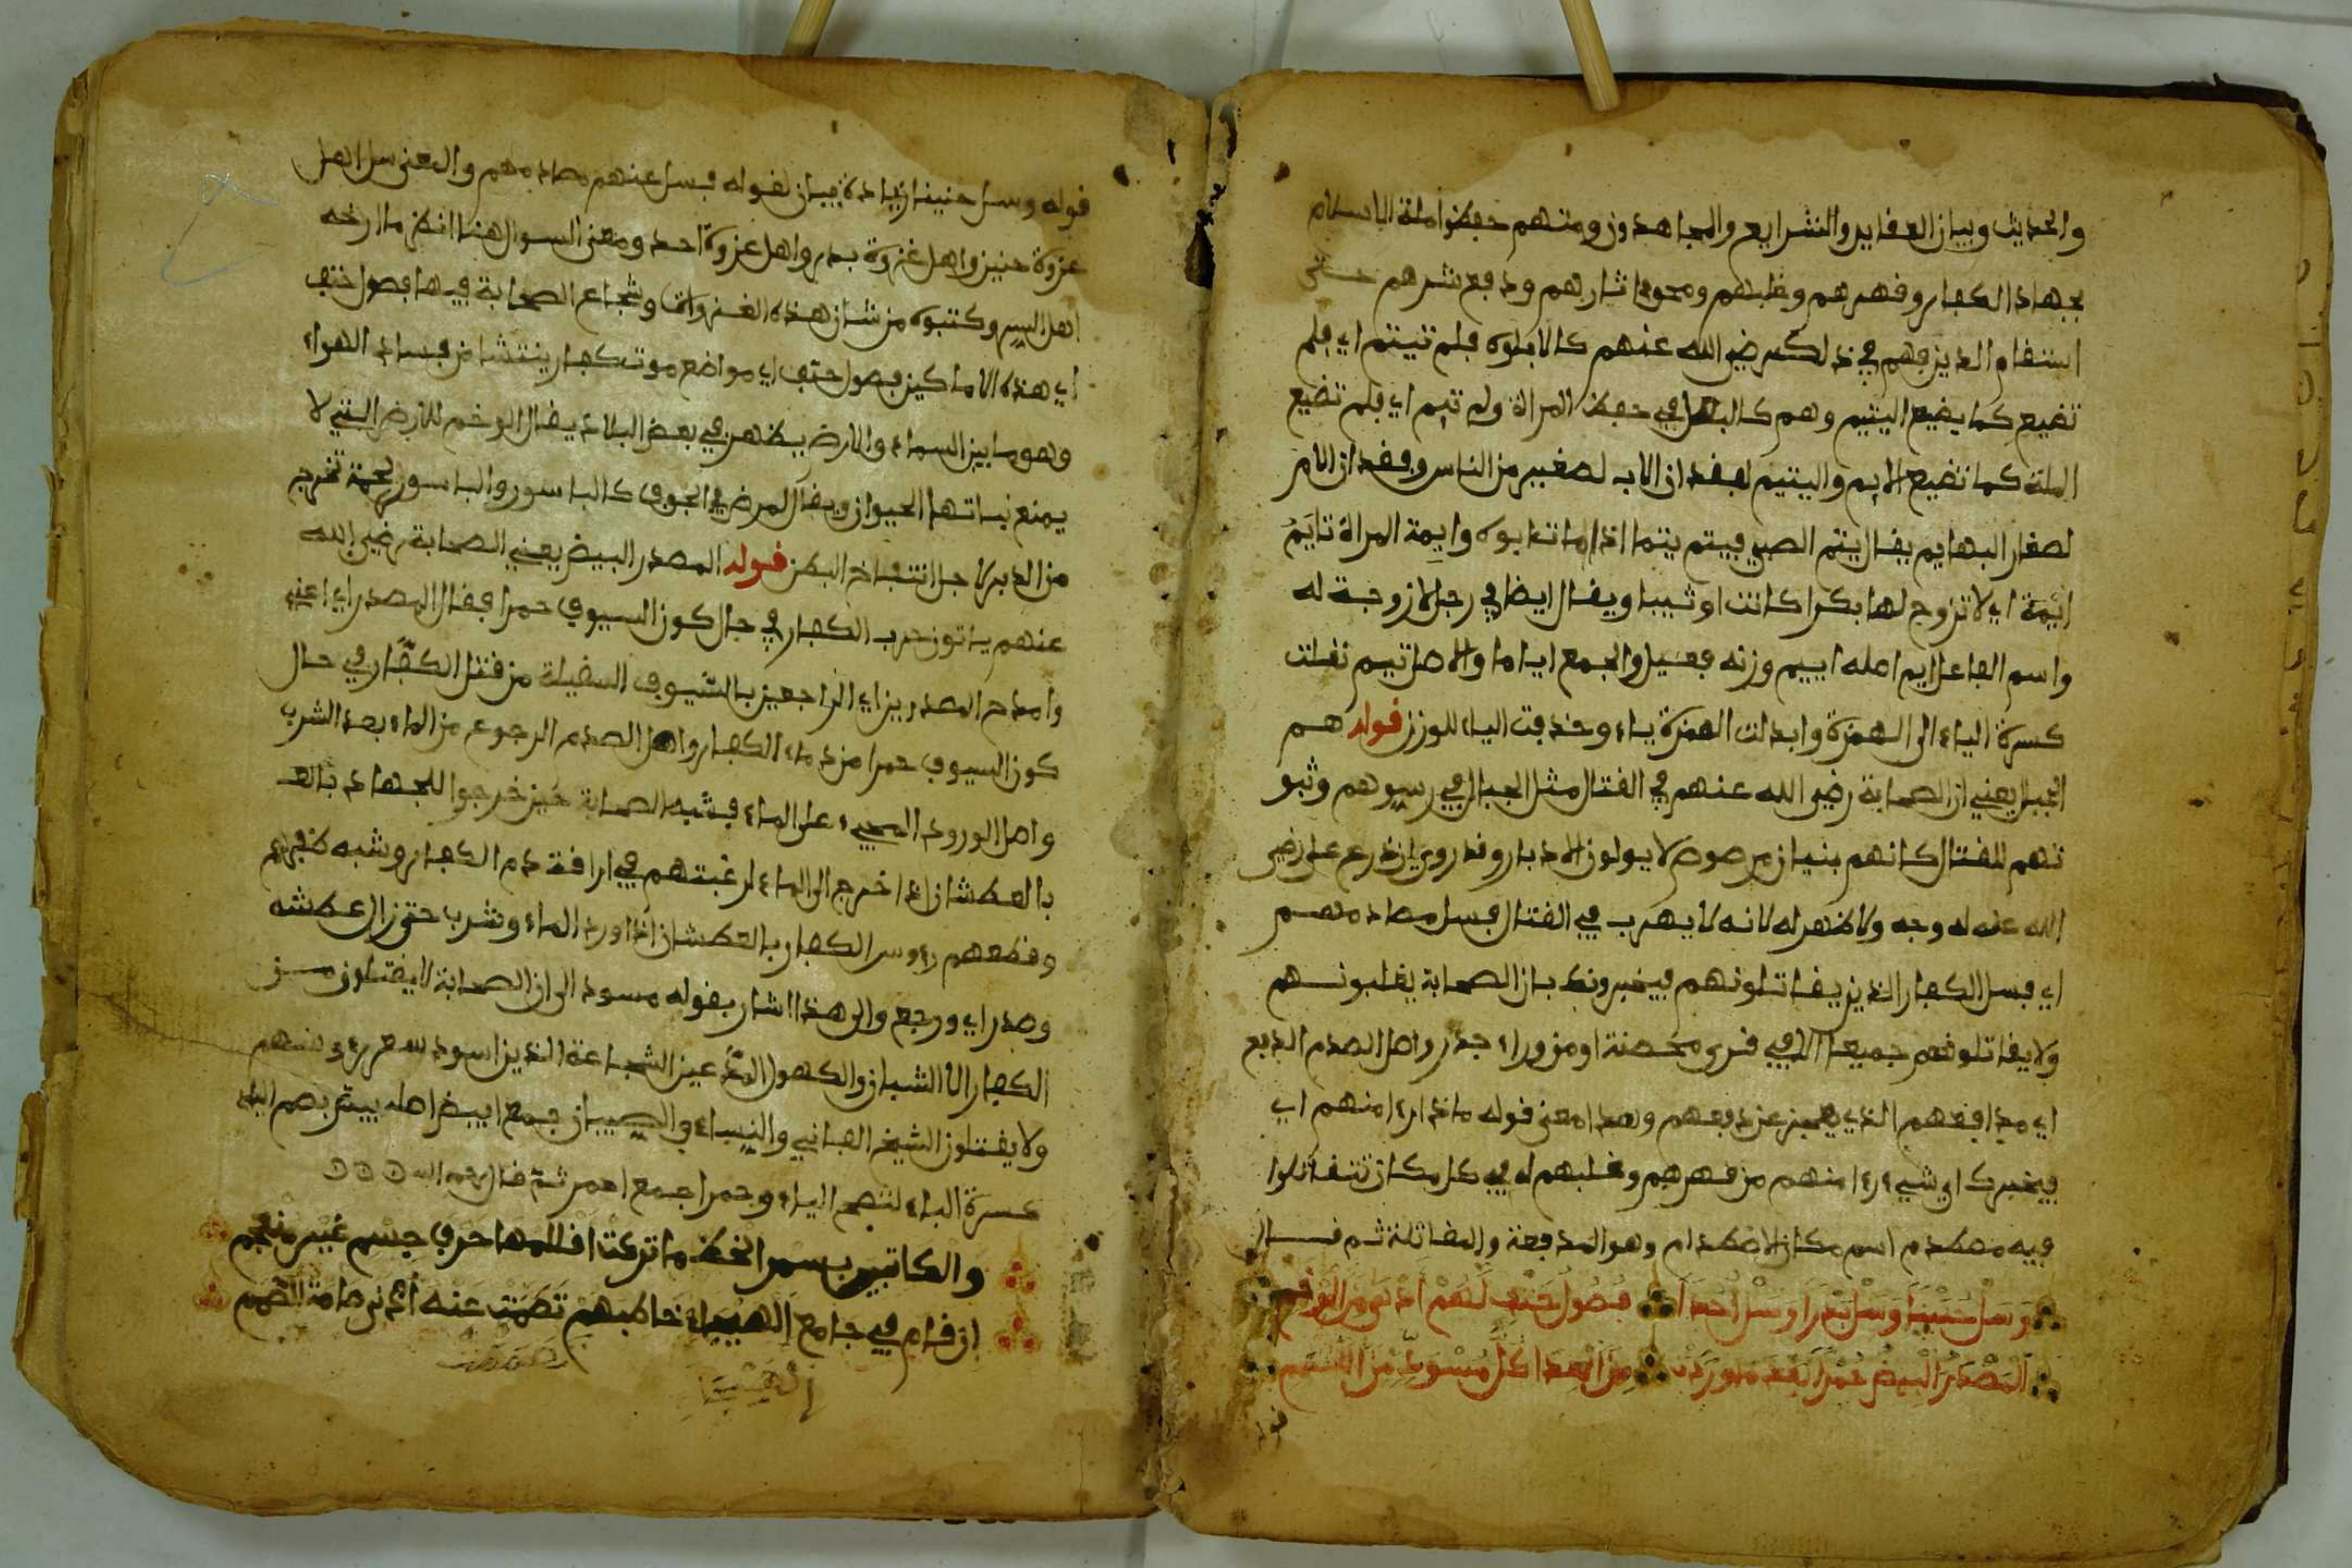 والحديث وبيان العقايد والشرايع والمجاهدون ومنهم حفظوا ملة الاسلام
بجهاد الكفار وقهرهم وغلبهم ومحوا اثارهم ودفع شرهم حتى
استقام الدين فهم في ذلك رضي الله عنهم كالابلوه فلم تيتم اي فلم
تضيع كما يضيع اليتيم وهم كالبعل في حفظ المراة ولم تيم اي فلم تضيع
الملة كما تضيع الايم واليتيم لفقدان الاب لصغير من الناس وفقدان الام
لصغار البهايم يقال يتم الصبي ييتم يتما اذا مات ابوه وايمة المراة تايم
ائمة اي لا تزوج لها بكرا كانت او ثيبا ويقال ايضا في رجل لا زوجة له
واسم الفاعل ايم اصله اييم وزنه فعيل والجمع اياما والاصل تيم نقلت
كسرة الياء الى الهمزة وابدلت الهمزة ياء وحذفت الياء للوزن قوله هم
الجبال يعني ان الصحابة رضي الله عنهم في القتال مثل الجبال في رسوهم وثبو
تهم للقتال كانهم بنيان مرصوص لا يولون الادبار وقد روي ان درع علي رضي
الله عنه له وجه ولا ظهر له لانه لا يهرب في القتال فسل مصادمهم
اي فسل الكفار الذين يقاتلونهم فيخبرونك بان الصحابة يغلبونهم
ولا يقاتلونهم جميعا الا في قرى محصنة او من وراء جدر واصل الصدم الدفع
اي مدافعهم الذي يعجز عن دفعهم وهذا معنى قوله ماذا راا منهم اي
فيخبرك اي شيء راا منهم من قهرهم وغلبهم له في كل مكان تتقاتلوا
فيه مصطدم اسم مكان الاصطدام وهو المدفعة والمقاتلة ثم قال
وسل حنينا وسل بدرا وسل احدا فصول حتف لهم ادهى من الوخم
المصدر البيض حمرا بعد ما وردت من العدا كل مسود من اللمم
قوله
قوله وسل حنينا زيادة بيان لقوله فسل عنهم مصادمهم والمعنى سل اهل
غزوة حنين واهل غزوة بدر واهل غزوة احد ومعنى السوال هنا انظر ما ارخه
اهل السير وكتبوه من شان هذه الغزوات وشجاع الصحابة فيها فصول حتف
اي هذه الاماكين فصول حتف اي مواضع موت كفار ينتشا من فساد الهواء
وهو ما بين السماء والارض يظهر في بعض البلاد يقال الوخم للارض التي لا
يمنع نباتها الحيوان ويقال لمرض في الجوف كالباسور والباسور لحمة تخرج
من الدبر لاجل انتفاخ البطن قوله المصدر البيض يعني الصحابة رضي الله
عنهم ياتون حرب الكفار في حال كون السيوف حمرا فقال المصدر اي اعني
وامدح المصدرين اي الراجعين بالسيوف السقيلة من قتل الكفار في حال
كون السيوف حمرا من دماء الكفار واصل الصدم الرجوع من الماء بعد الشرب
واصل الورود المجيء على الماء فشبه الصحابة حين خرجوا للجهاد بالعـ
بالعطشان اذا خرج الى الماء لرغبتهم في اراقة دم الكفار وشبه ظفرهم
وقطعهم رءوس الكفار بالعطشان اذا ورد الماء وشرب حتى زال عطشه
وصدر اي ورجع والى هذا اشار بقوله مسود الى ان الصحابة لا يقتلون من
الكفار الا الشبان والكهول عين الشجاعة الذين اسود شعر رءوسهم
ولا يقتلون الشيخ الفاني والنساء والصبيان جمع ابيض اصله بيض بضم الباء
كسرة الباء لتصح الياء وحمرا جمع احمر ثم قال رحمه الله
والكاتبين بسمر الخط ما تركت اقلامها حرف جسم غير منعجم
ان قام في جامع الهيجاء خاطبهم تصممت عنه اذنى صامة الصمم
الهيجا